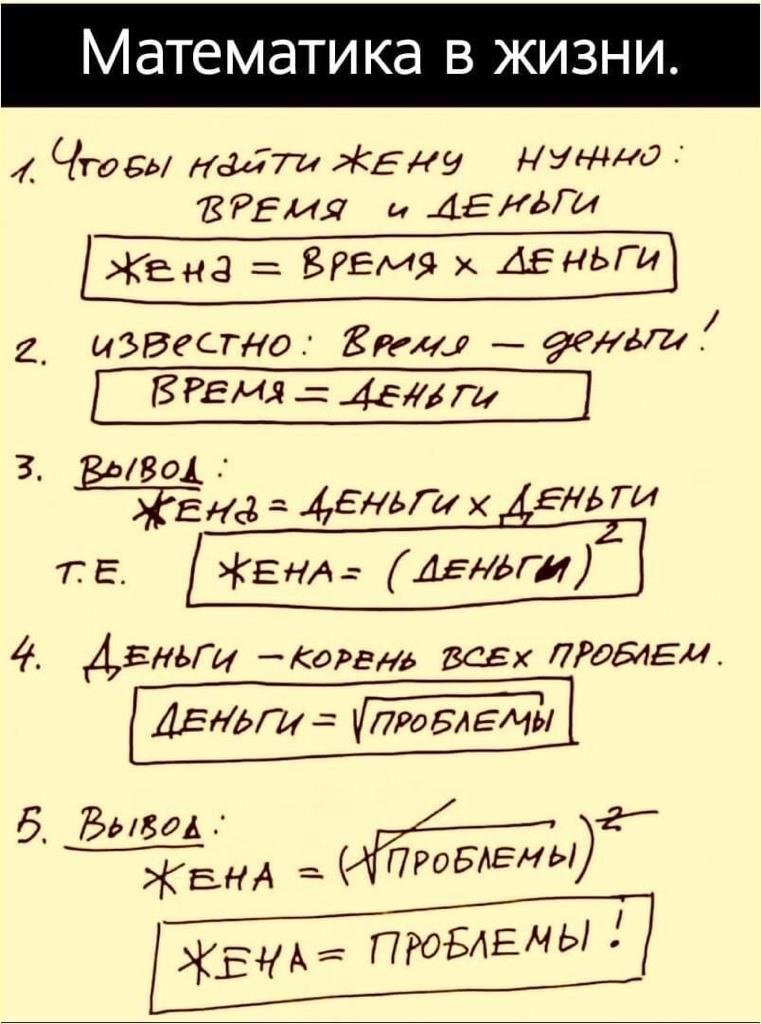 Математика в жизни.
1. Чтобы найти жену нужно:
время и деньги
Жена = время x деньги
2. известно: Время – деньги!
Время = деньги
3. Вывод:
Жена = деньги x деньги
т.е. Жена = (деньги)²
4. Деньги – корень всех проблем.
Деньги = √проблемы
5. Вывод:
Жена = (√проблемы)²
Жена = проблемы!